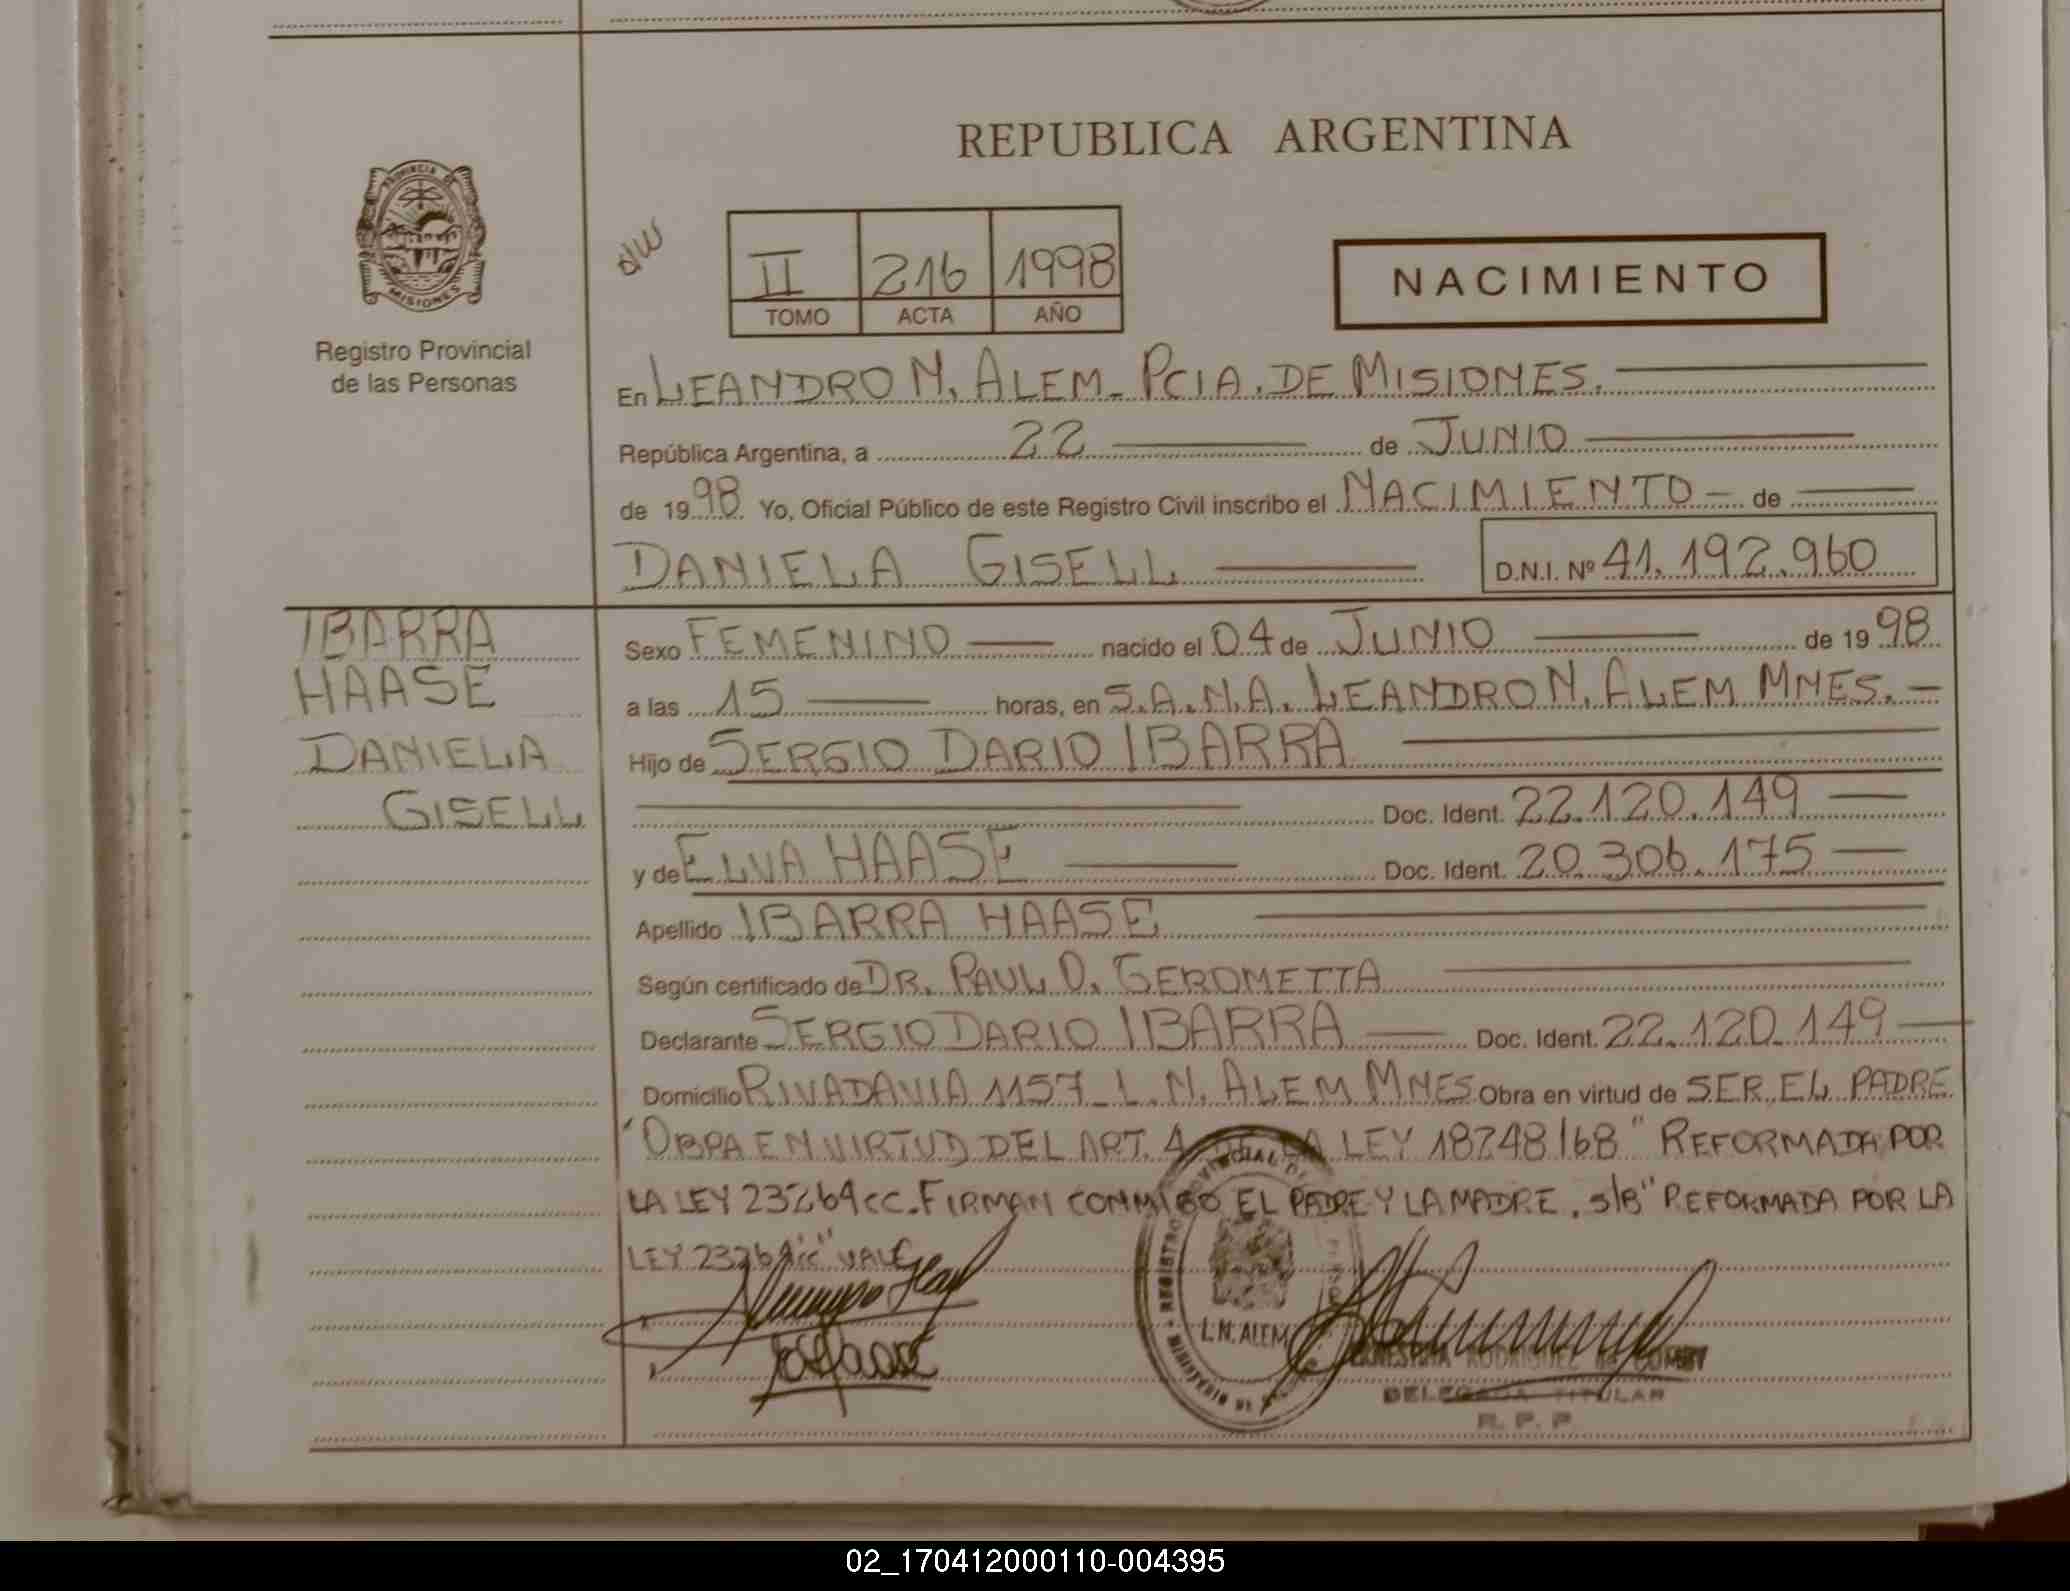 REPUBLICA ARGENTINA
PROVINCIA DE
MISIONES
Registro Provincial
de las Personas
II 216 1998
TOMO ACTA AÑO
NACIMIENTO
En LEANDRO N. ALEM - PCIA. DE MISIONES.
República Argentina, a 22 de JUNIO
de 1998 Yo, Oficial Público de este Registro Civil inscribo el NACIMIENTO - de
DANIELA GISELL D.N.I. Nº 41.192.960
IBARRA
HAASE
DANIELA
GISELL
Sexo FEMENINO nacido el 04 de JUNIO de 1998
a las 15 horas, en S.A.N.A. LEANDRO N. ALEM MNES. -
Hijo de SERGIO DARIO IBARRA
Doc. Ident. 22.120.149
y de ELVA HAASE Doc. Ident. 20.306.175
Apellido IBARRA HAASE
Según certificado de DR. PAUL O. GEROMETTA
Declarante SERGIO DARIO IBARRA Doc. Ident. 22.120.149
Domicilio RIVADAVIA 1157 - L.N. ALEM MNES Obra en virtud de SER EL PADRE
"OBRA EN VIRTUD DEL ART. 4 DE LA LEY 18248/68" REFORMADA POR
LA LEY 23264 CC. FIRMAN CONMIGO EL PADRE Y LA MADRE. S/B "REFORMADA POR LA
LEY 23264 "CC" VALE
L.N. ALEM
RODRIGUEZ de
DELEGADA TITULAR
R. P. P
02_170412000110-004395